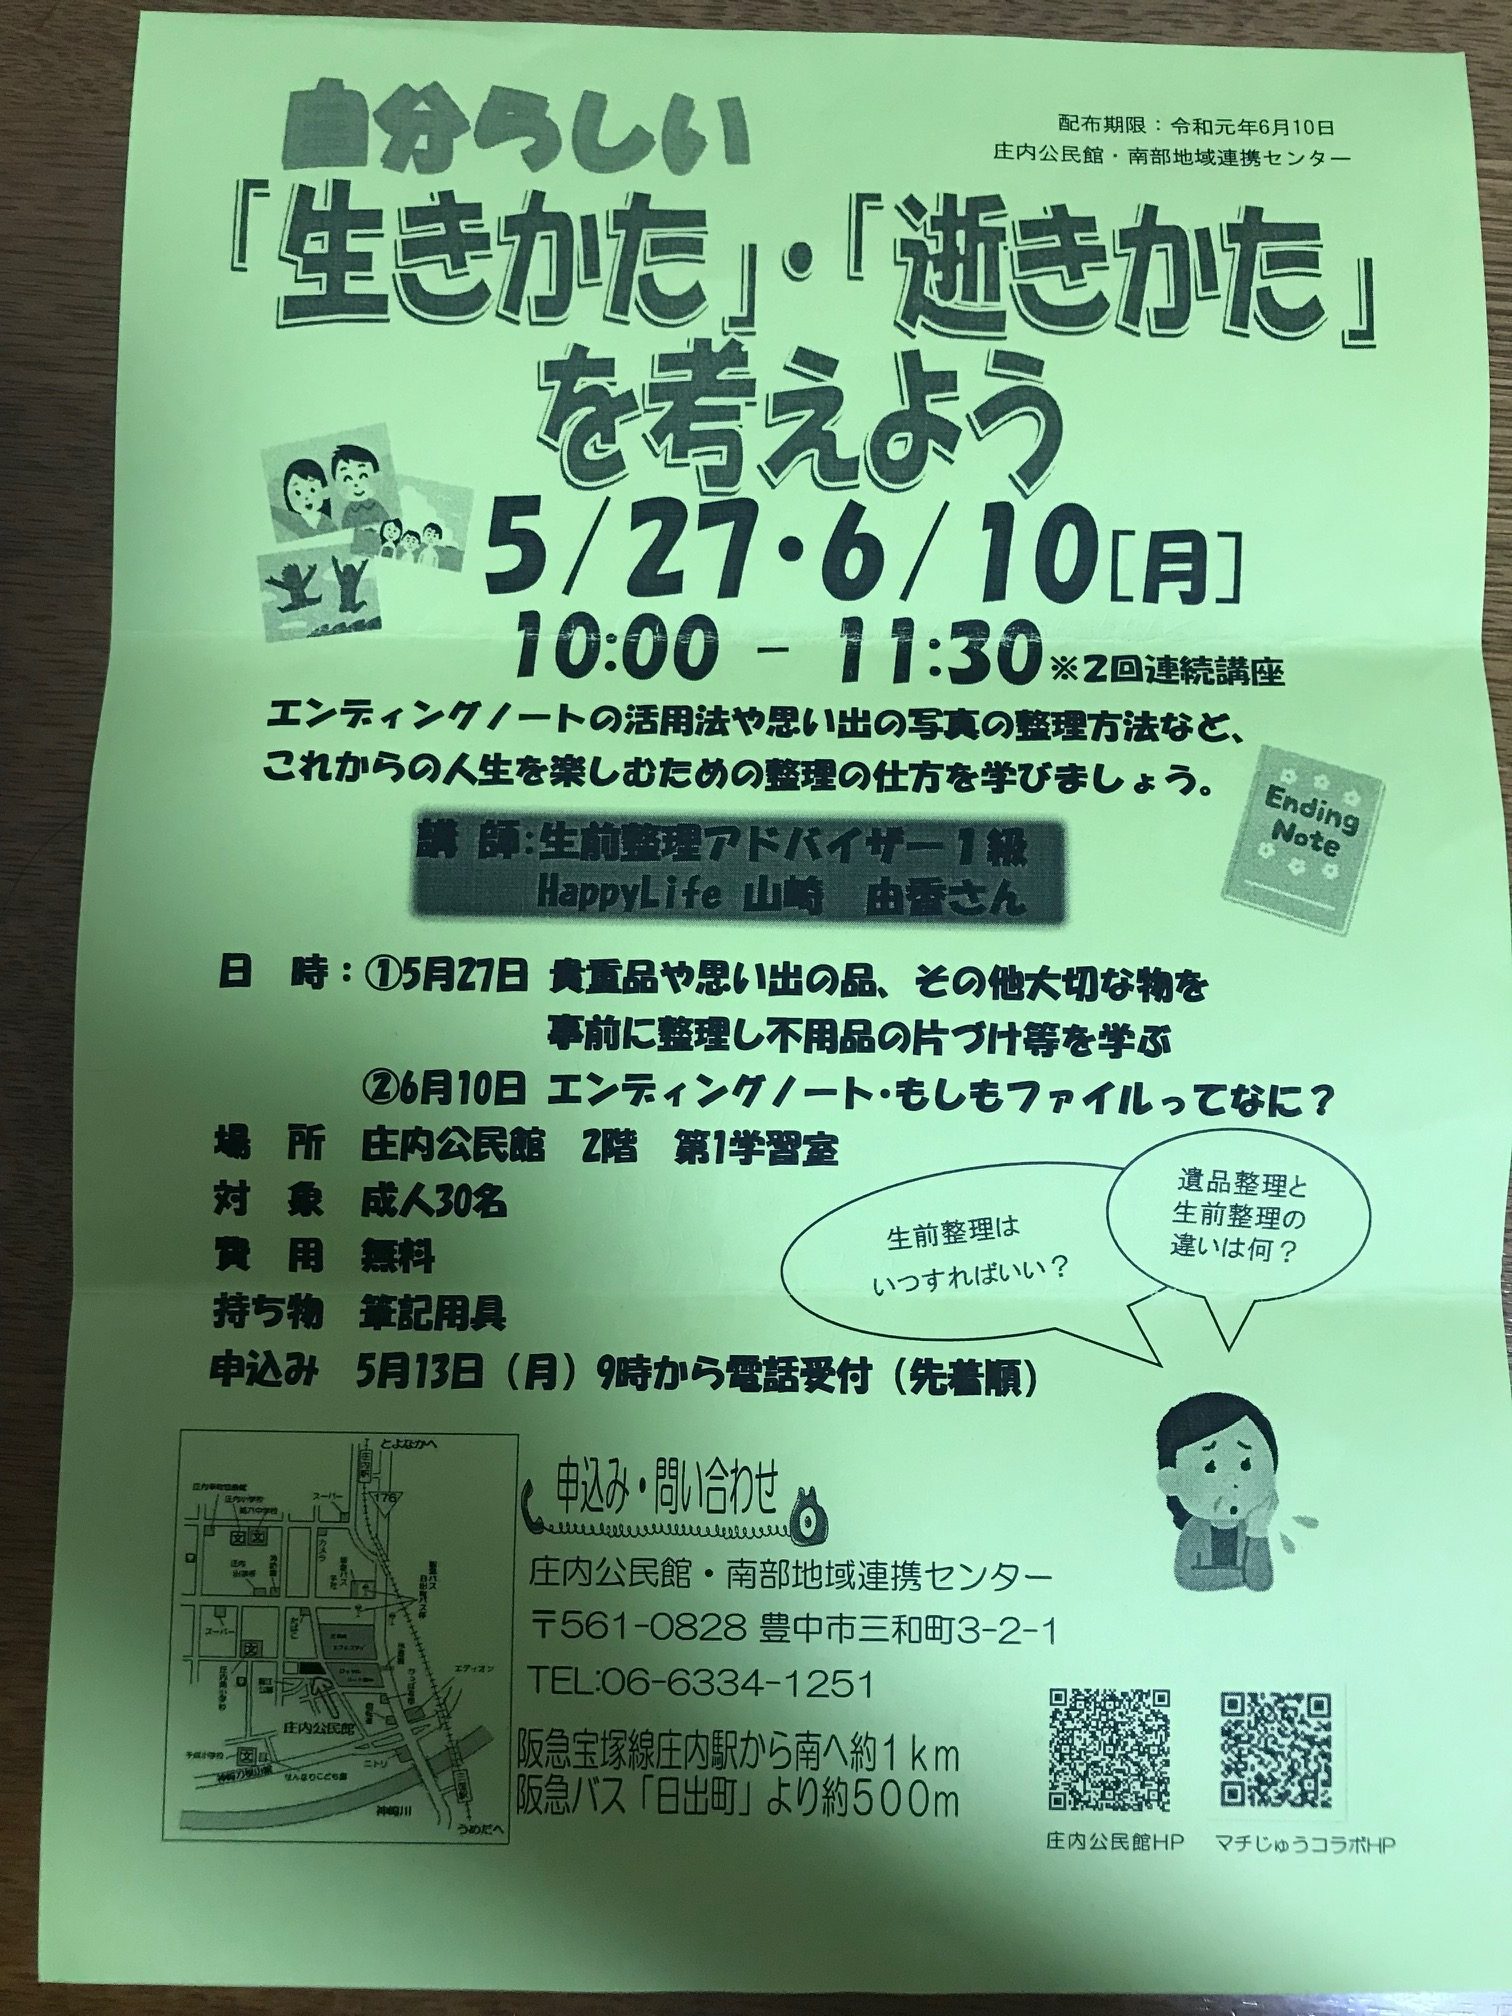 配布期限：令和元年6月10日
庄内公民館・南部地域連携センター
自分らしい
「生きかた」・「逝きかた」
を考えよう
5/27・6/10［月］
10:00 － 11:30※2回連続講座
エンディングノートの活用法や思い出の写真の整理方法など、
これからの人生を楽しむための整理の仕方を学びましょう。
Ending
Note
講 師：生前整理アドバイザー1級
HappyLife 山崎 由香さん
日 時：①5月27日 貴重品や思い出の品、その他大切な物を
事前に整理し不用品の片づけ等を学ぶ
②6月10日 エンディングノート・もしもファイルってなに？
場 所 庄内公民館 2階 第1学習室
対 象 成人30名
費 用 無料
持ち物 筆記用具
申込み 5月13日（月）9時から電話受付（先着順）
生前整理は
いつすればいい？
遺品整理と
生前整理の
違いは何？
申込み・問い合わせ
庄内公民館・南部地域連携センター
〒561-0828 豊中市三和町3-2-1
TEL:06-6334-1251
阪急宝塚線庄内駅から南へ約1km
阪急バス「日出町」より約500m
庄内公民館HP
マチじゅうコラボHP
とよなかへ
庄内駅
176
スーパー
カメラ
文
文
スーパー
文
エディオン
庄内公民館
文
ニトリ
神崎川
うめだへ